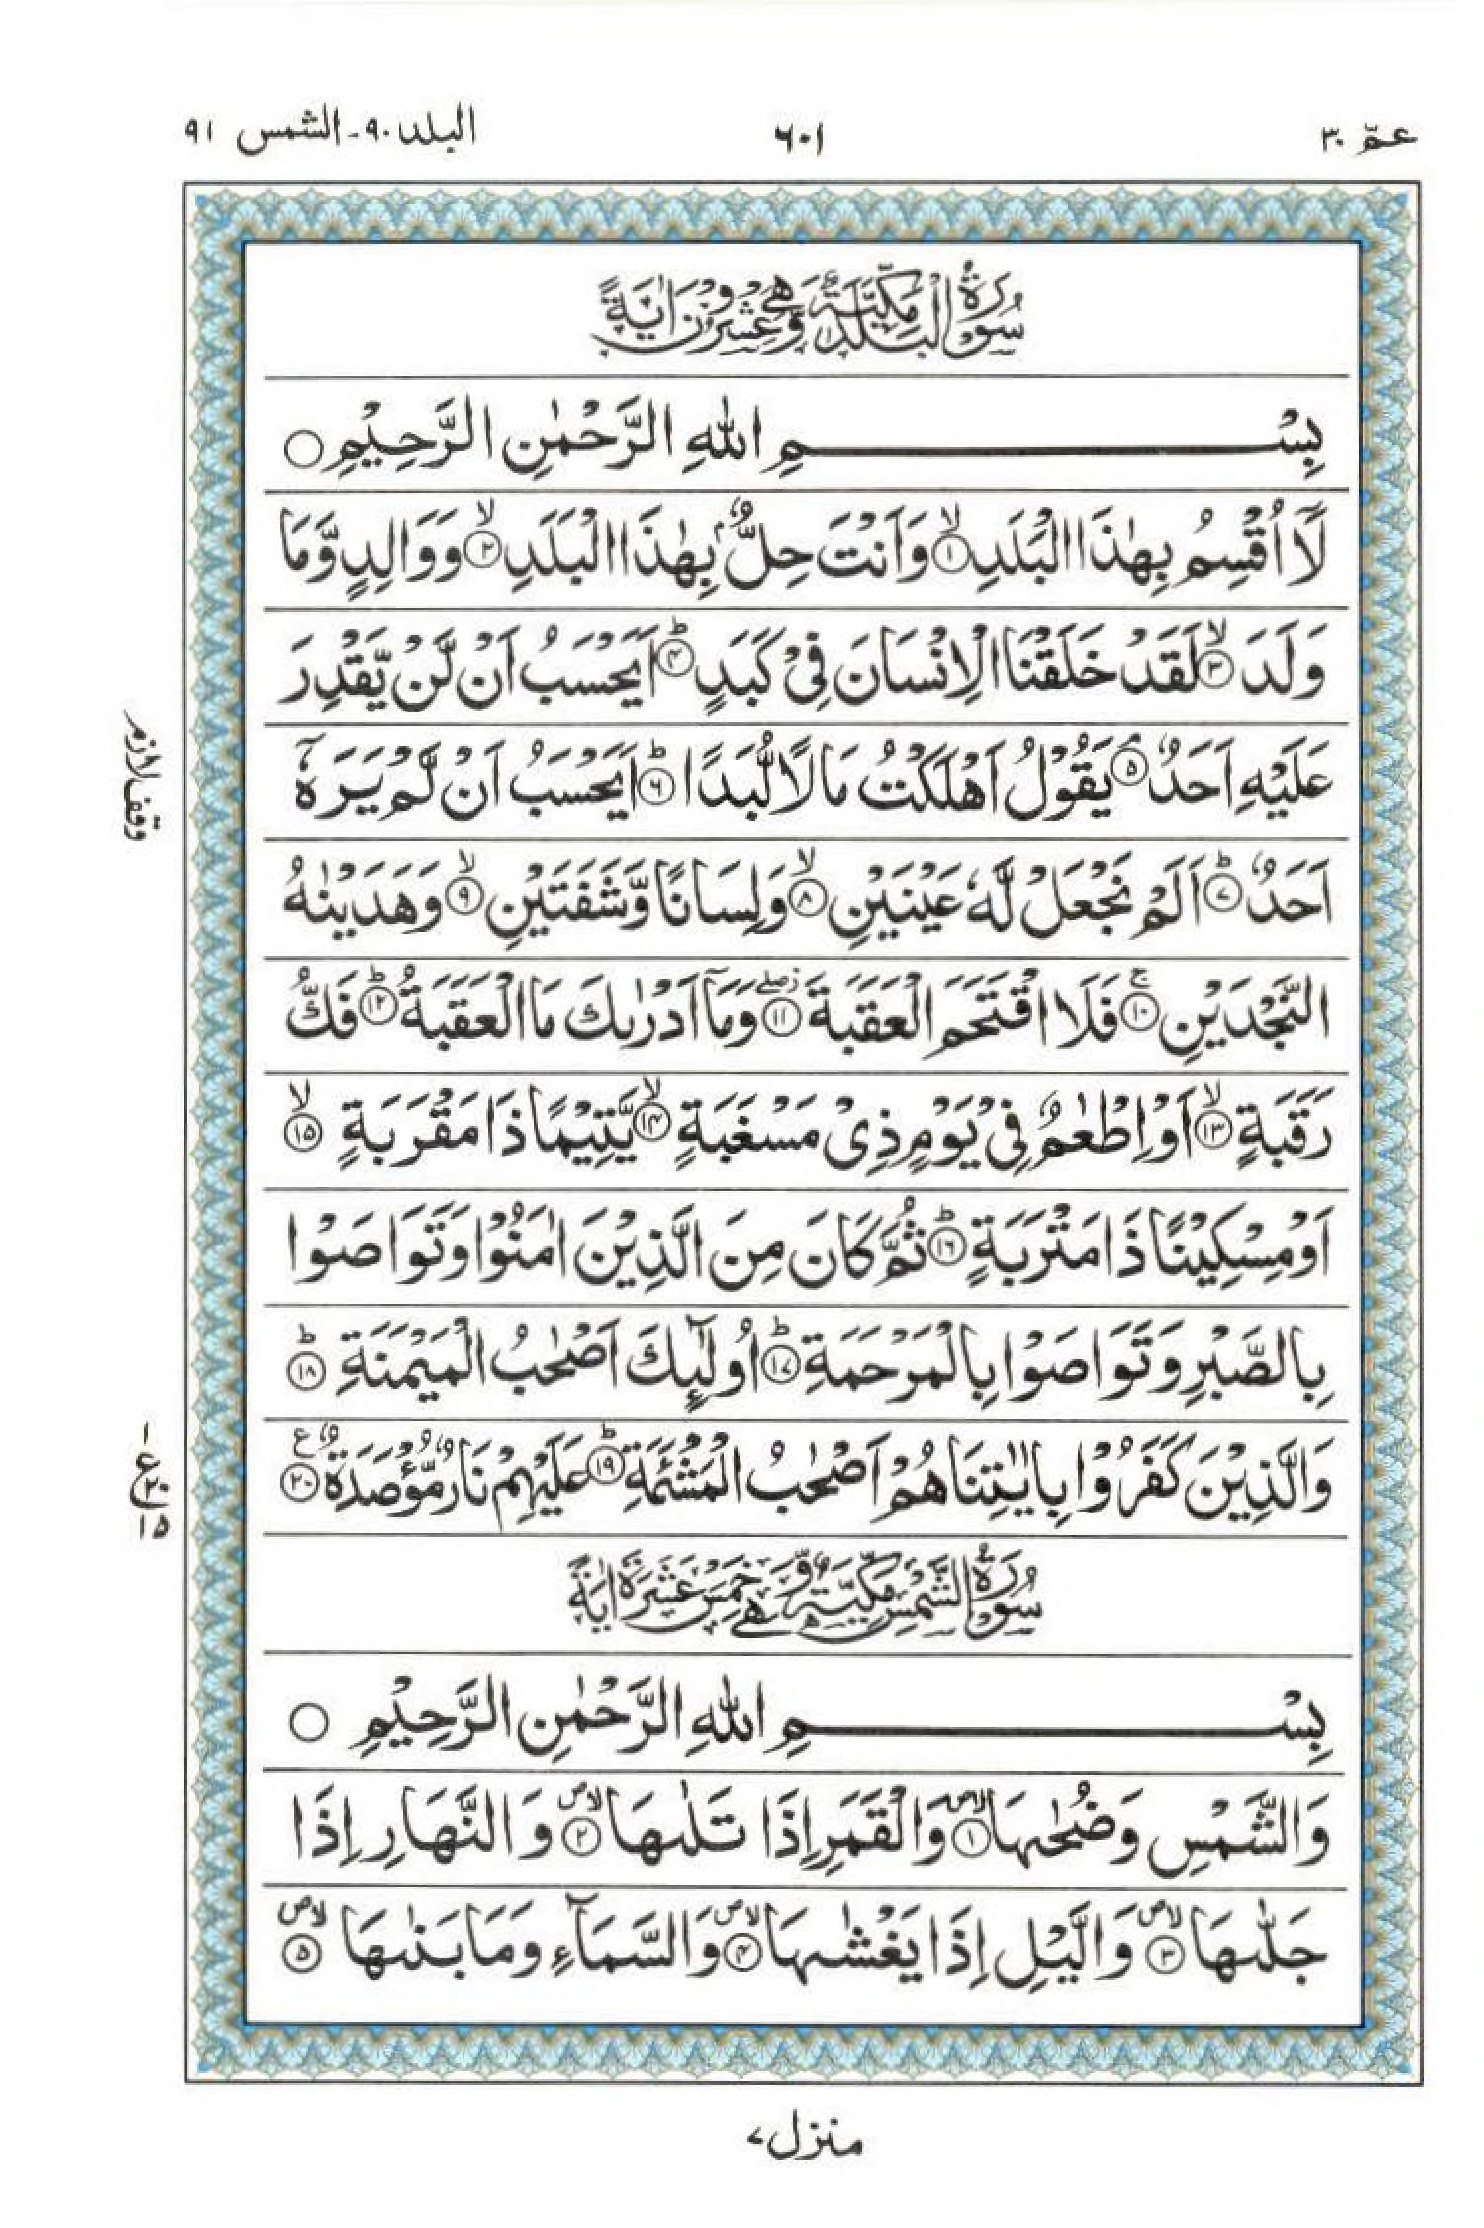 عمّ ٣٠ ٦٠١ البلد ٩٠ - الشمس ٩١
سُوْرَةُ الْبَلَدِ مَكِّيَّةٌ وَّهِيَ عِشْرُوْنَ اٰيَةً
بِسْمِ اللهِ الرَّحْمٰنِ الرَّحِيْمِ ○
لَاۤ اُقْسِمُ بِهٰذَا الْبَلَدِ ۙ﴿١﴾ وَاَنْتَ حِلٌّۢ بِهٰذَا الْبَلَدِ ۙ﴿٢﴾ وَوَالِدٍ وَّمَا
وَلَدَ ۙ﴿٣﴾ لَقَدْ خَلَقْنَا الْاِنْسَانَ فِيْ كَبَدٍ ؕ﴿٤﴾ اَيَحْسَبُ اَنْ لَّنْ يَّقْدِرَ
عَلَيْهِ اَحَدٌ ۘ﴿٥﴾ يَقُوْلُ اَهْلَكْتُ مَالًا لُّبَدًا ؕ﴿٦﴾ اَيَحْسَبُ اَنْ لَّمْ يَرَهٗۤ
وقف لازم
اَحَدٌ ؕ﴿٧﴾ اَلَمْ نَجْعَلْ لَّهٗ عَيْنَيْنِ ۙ﴿٨﴾ وَلِسَانًا وَّشَفَتَيْنِ ۙ﴿٩﴾ وَهَدَيْنٰهُ
النَّجْدَيْنِ ۚ﴿١٠﴾ فَلَا اقْتَحَمَ الْعَقَبَةَ ۖز﴿١١﴾ وَمَاۤ اَدْرٰىكَ مَا الْعَقَبَةُ ؕ﴿١٢﴾ فَكُّ
رَقَبَةٍ ۙ﴿١٣﴾ اَوْ اِطْعٰمٌ فِيْ يَوْمٍ ذِيْ مَسْغَبَةٍ ۙ﴿١٤﴾ يَّتِيْمًا ذَا مَقْرَبَةٍ ۙ﴿١٥﴾
اَوْ مِسْكِيْنًا ذَا مَتْرَبَةٍ ؕ﴿١٦﴾ ثُمَّ كَانَ مِنَ الَّذِيْنَ اٰمَنُوْا وَتَوَاصَوْا
بِالصَّبْرِ وَتَوَاصَوْا بِالْمَرْحَمَةِ ؕ﴿١٧﴾ اُولٰٓئِكَ اَصْحٰبُ الْمَيْمَنَةِ ؕ﴿١٨﴾
وَالَّذِيْنَ كَفَرُوْا بِاٰيٰتِنَا هُمْ اَصْحٰبُ الْمَشْـَٔمَةِ ؕ﴿١٩﴾ عَلَيْهِمْ نَارٌ مُّؤْصَدَةٌ ع﴿٢٠﴾
١
ع ٢٠
١٥
سُوْرَةُ الشَّمْسِ مَكِّيَّةٌ وَّهِيَ خَمْسَ عَشْرَةَ اٰيَةً
بِسْمِ اللهِ الرَّحْمٰنِ الرَّحِيْمِ ○
وَالشَّمْسِ وَضُحٰىهَا لاص﴿١﴾ وَالْقَمَرِ اِذَا تَلٰىهَا لاص﴿٢﴾ وَالنَّهَارِ اِذَا
جَلّٰىهَا لاص﴿٣﴾ وَالَّيْلِ اِذَا يَغْشٰىهَا لاص﴿٤﴾ وَالسَّمَآءِ وَمَا بَنٰىهَا لاص﴿٥﴾
منزل ٧